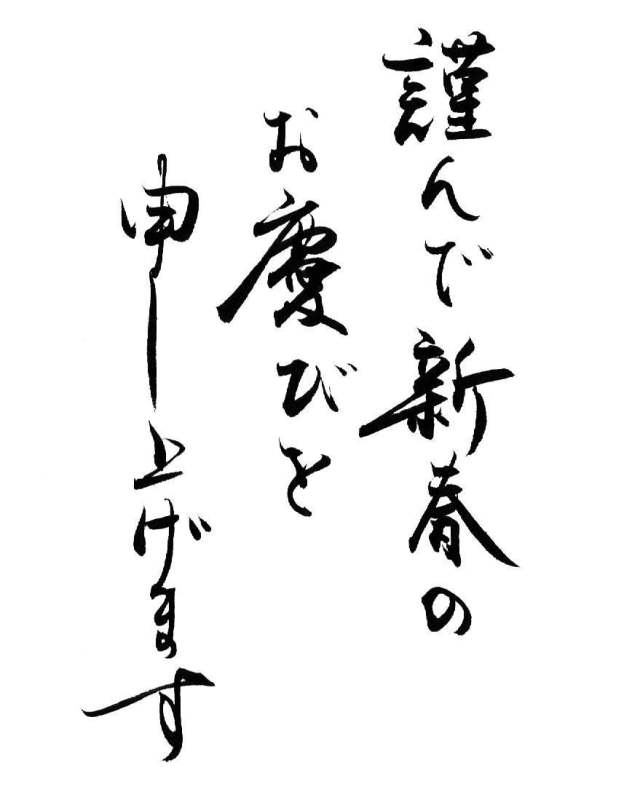 謹んで新春の
お慶びを
申上げます